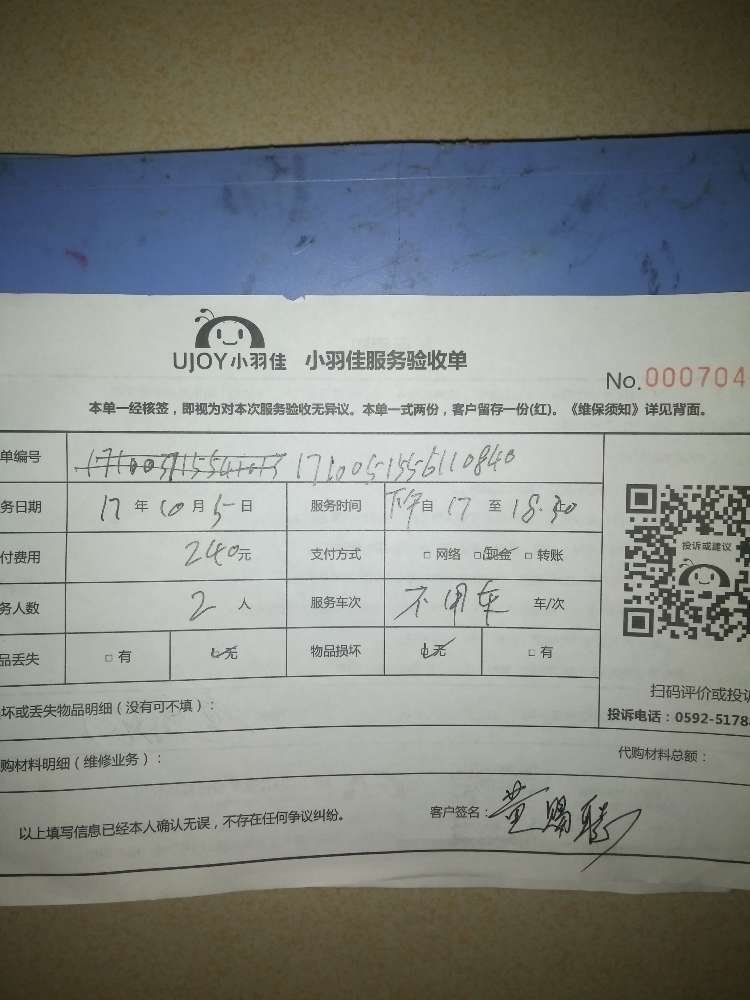 UJOY小羽佳 小羽佳服务验收单
No.000704
本单一经核签，即视为对本次服务验收无异议。本单一式两份，客户留存一份(红)。《维保须知》详见背面。
单编号 1710051556110840
务日期 17 年 10 月 5 日 服务时间 下午自 17 至 18.30
付费用 240元 支付方式 □ 网络 □ 现金 □ 转账
务人数 2 人 服务车次 不用车 车/次
品丢失 □ 有 □ 无 物品损坏 □ 无 □ 有
投诉或建议
扫码评价或投诉
坏或丢失物品明细（没有可不填）：
投诉电话：0592-5178
购材料明细（维修业务）： 代购材料总额：
以上填写信息已经本人确认无误，不存在任何争议纠纷。 客户签名：黄